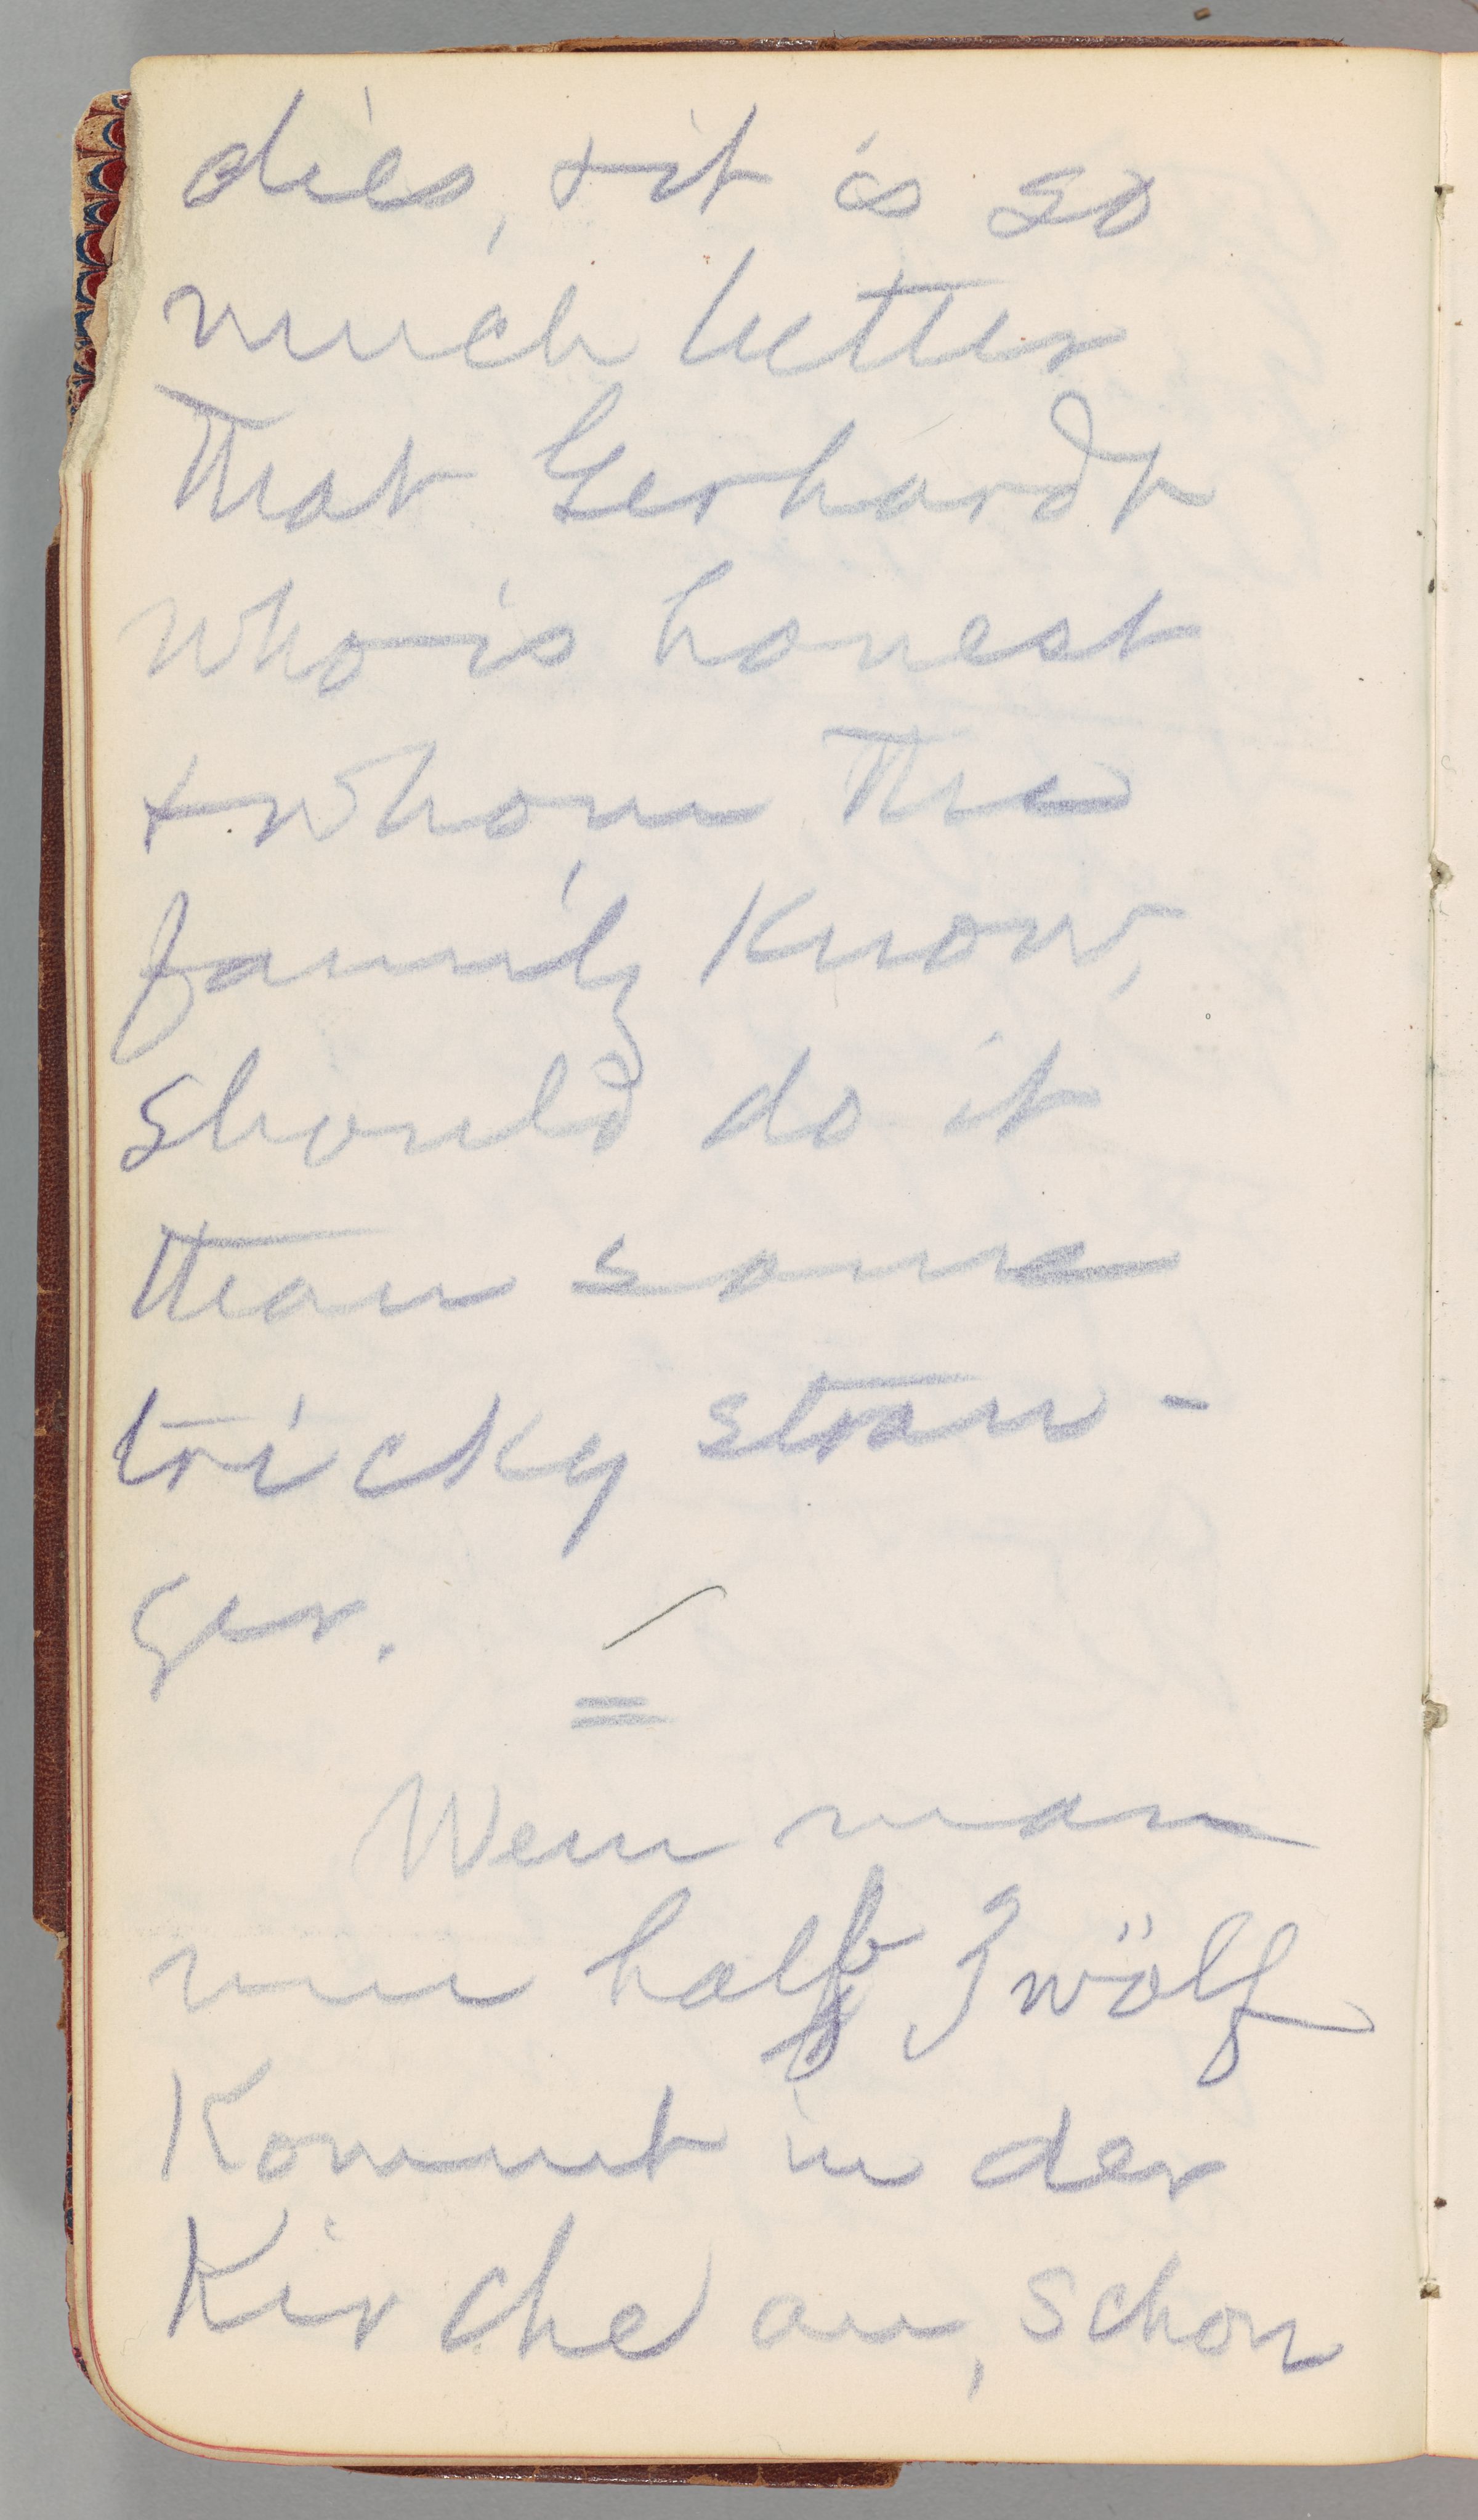 dies, + it is so
much better
that Gerhardt
who is honest
+ whom the
family know,
should do it
than some
tricky stran-
ger.
=
Wenn man
um halb Zwölf
Kommt in der
Kirche an, schon